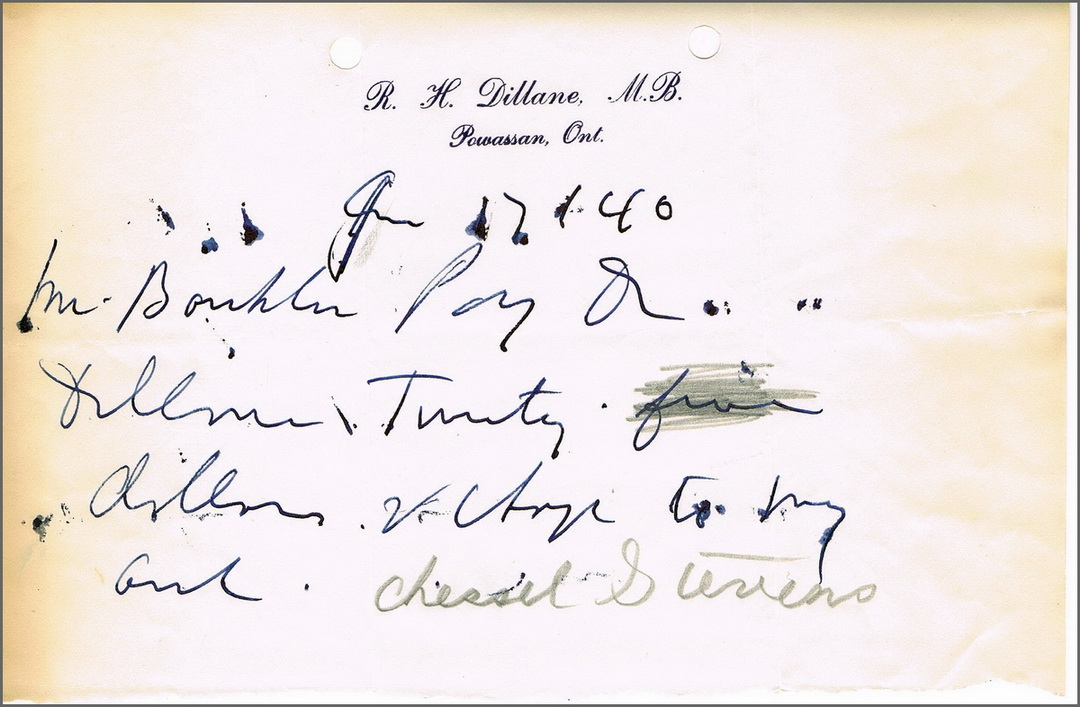 R. H. Dillane, M.B.
Powassan, Ont.
Jan 17 1940
Mr. Pay Dr
Dillane Twenty five
dollars & charge to my
acct. Stevens